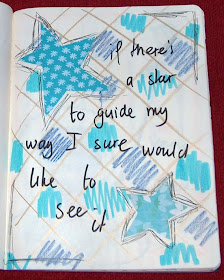 if there's
a star
to guide my
way I sure would
like to
see it